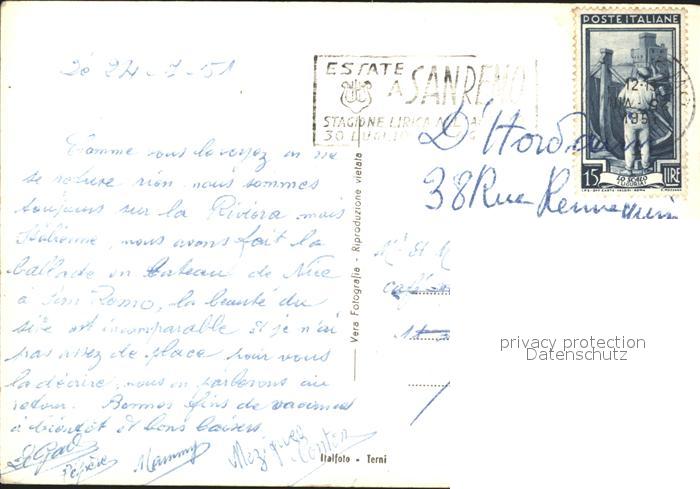 24-7-51
ESTATE
A SANREMO
STAGIONE LIRICA ALL'A
30 LUGLIO
POSTE ITALIANE
12-13
195
LO SCALO
LIGURIA
15 LIRE
Comme vous le voyez on ne
se refuse rien nous sommes
toujours sur la Riviera mais
Italienne, nous avons fait la
ballade en bateau de Nice
à San Remo, la beauté du
site est incomparable et je n'ai
pas assez de place pour vous
la décrire, nous en parlerons au
retour. Bonnes fins de vacances
à bientôt et bons baisers
Pépère Mammy
38 Rue
Mr Et M
café
Vera Fotografia - Riproduzione vietata
privacy protection
Datenschutz
Italfoto - Terni